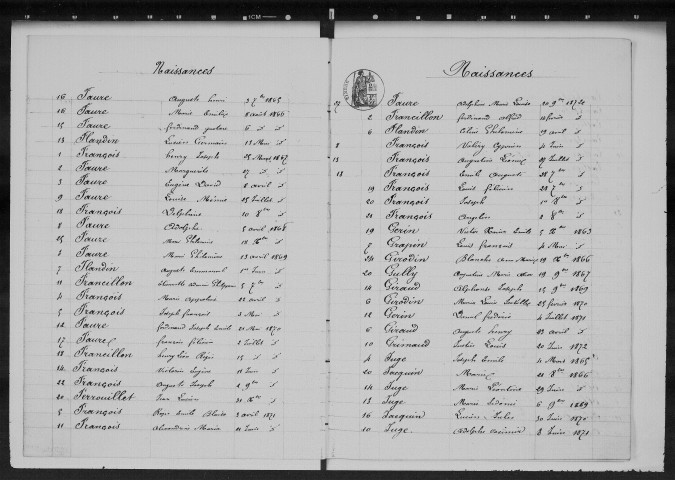 1CM
Naissances
16 Faure Auguste henri 3 7bre 1865
16 Faure Marie Emilie 8 août 1866
15 Faure ferdinand gustave 6 d d
13 Flandin Lucien Germain 13 Mai d
1 François henry Joseph 25 Mars 1867
2 Faure Marguerite 27 d d
3 Faure Eugène David 8 avril d
9 Faure Louise Noémie 25 Juillet d
18 François Delphine 10 8bre d
8 Faure Adolphe 5 avril 1868
25 Faure Philomène 18 Xbre d
4 Faure Marie Philomène 13 avril 1869
7 Flandin Auguste Emmanuel 1er Juin d
11 Francillon 5 7bre d
4 François Marie Appolonie 22 avril d
5 François Joseph françois 2 Mai d
12 Faure ferdinand Joseph Emile 21 Mai 1870
17 Faure françois félicien 2 Juillet d
18 Francillon henry Léon Régis 15 d d
14 François Victorin Eugène 11 Juin d
22 François Auguste Joseph 2 9bre d
20 Ferrouillet Jean Lucien 31 Xbre d
5 François Régis Emile Blaise 3 avril 1871
11 François Alexandrine Marie 11 Juin d
Naissances
27 Faure Delphine Marie Louise 20 9bre 1872
2 Francillon ferdinand alfred 10 février d
6 Flandin Célina Philomène 19 avril d
8 François Valéry Cyprien 4 Juin d
13 François Augustin 27 Juillet d
18 François Emile Auguste 28 7bre d
19 François Louis félicien 28 7bre d
20 François Joseph 1er 8bre d
21 François Angeline 2 8bre d
19 Gerin Victor Xavier Emile 5 Xbre 1863
7 Grapin Louis françois 4 Mai d
24 Girodin Blanche 19 Xbre 1866
20 Gully Augustin Marie 19 9bre 1867
14 Giraud Alphonse Joseph 15 9bre 1869
6 Girodin Marie Louise 25 février 1870
18 Gerin Daniel frédéric 4 Juillet 1871
6 Giraud Auguste henry 23 avril d
10 Grimaud Justin Louis 20 Juin 1872
4 Juge Joseph Emile 4 Mars 1865
20 Jacquin Marie 21 8bre 1866
14 Juge Marie Léontine 29 Juin d
13 Juge Marie 6 9bre 1869
16 Jacquin Lucien Jules 30 Juin 1870
10 Juge Adolphe casimir 8 Juin 1871